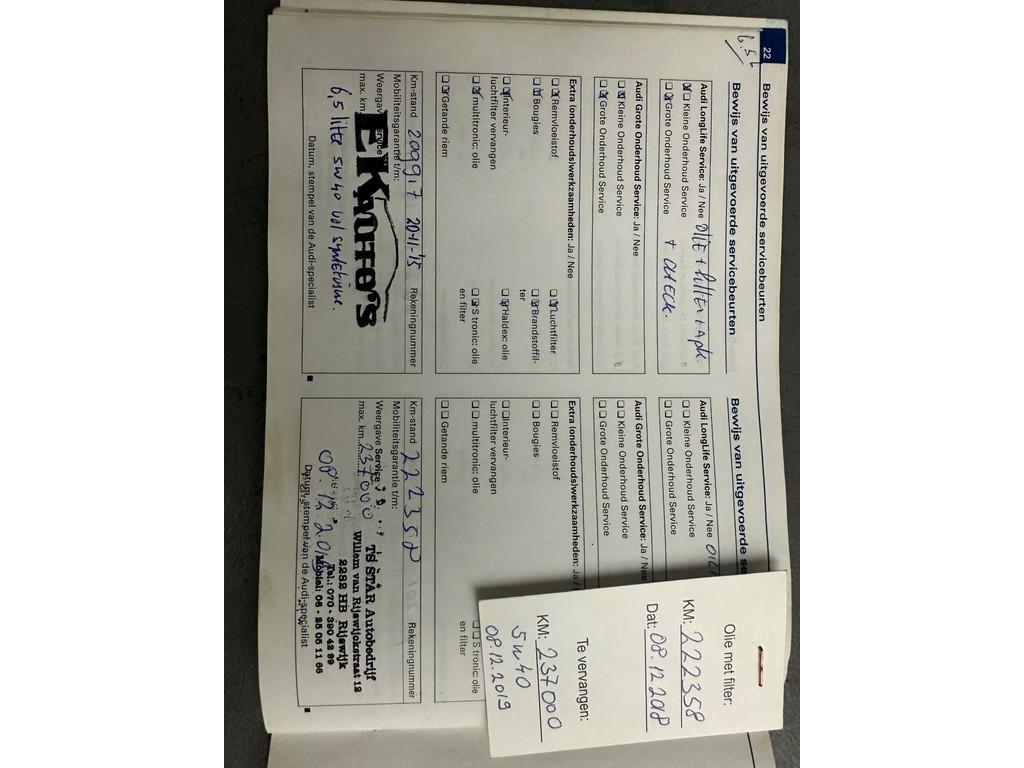 22
6,5 L
Bewijs van uitgevoerde servicebeurten
Bewijs van uitgevoerde servicebeurten
Audi LongLife Service: Ja / Nee OLIE + FILTER + APK
Kleine Onderhoud Service
Grote Onderhoud Service + CHECK.
Audi Grote Onderhoud Service: Ja / Nee
Kleine Onderhoud Service
Grote Onderhoud Service
Extra (onderhouds)werkzaamheden: Ja / Nee
Remvloeistof
Luchtfilter
Bougies
Brandstoffil-
ter
Interieur-
luchtfilter vervangen
Haldex: olie
multitronic: olie
S tronic: olie
en filter
Getande riem
Km-stand 209917 20-11-'15 Rekeningnummer
Mobiliteitsgarantie t/m:
Weergave Service
max. km
6,5 liter 5W40 vol syntetische.
Datum, stempel van de Audi-specialist
Bewijs van uitgevoerde se
Audi LongLife Service: Ja / Nee
Kleine Onderhoud Service
Grote Onderhoud Service
Audi Grote Onderhoud Service: Ja / N
Kleine Onderhoud Service
Grote Onderhoud Service
Extra (onderhouds)werkzaamheden: Ja /
Remvloeistof
Bougies
Interieur-
luchtfilter vervangen
multitronic: olie
S tronic: olie
en filter
Getande riem
Km-stand 222358 Rekeningnummer
Mobiliteitsgarantie t/m:
Weergave Service
max. km. 237000
TS STAR Autobedrijf
Willem van Rijswijckstraat 12
2282 HB Rijswijk
Tel.: 070 - 390 42 99
Mobiel: 06 - 25 05 11 66
Datum, stempel van de Audi-specialist
Olie met filter:
KM: 222358
Dat: 08.12 2018
Te vervangen:
KM: 237000
5W40
08.12.2019